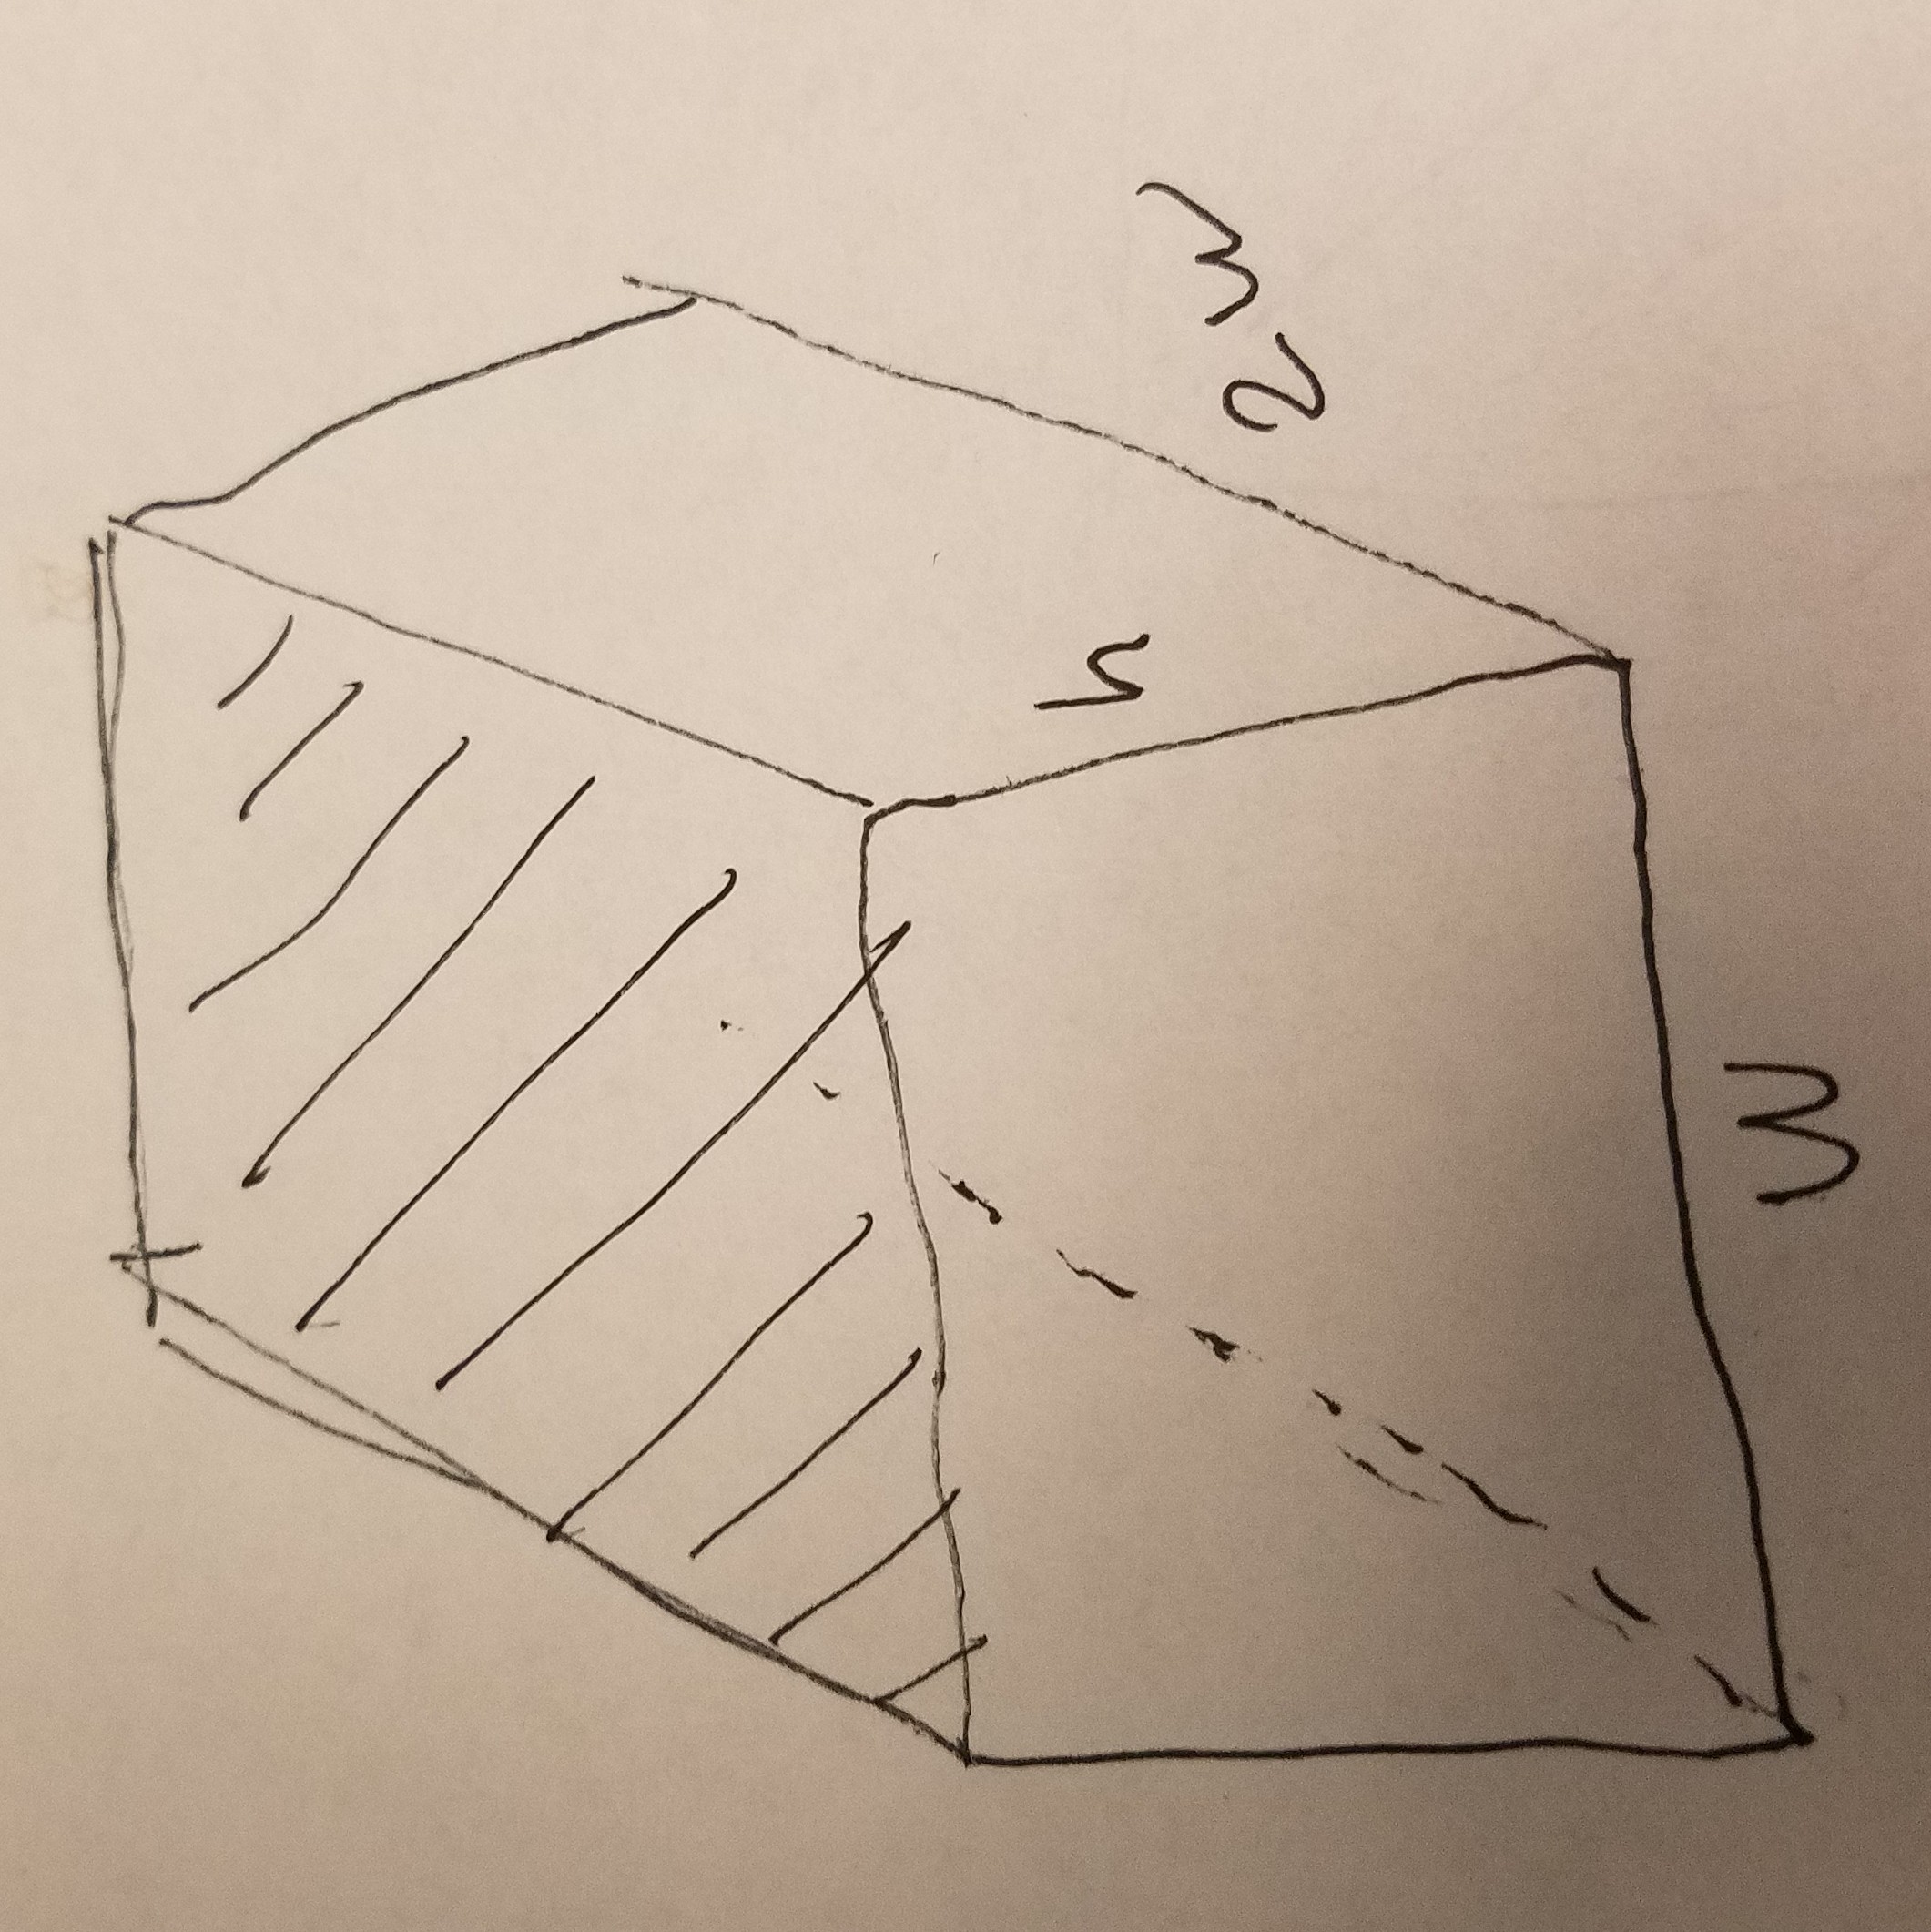 h
2w
w